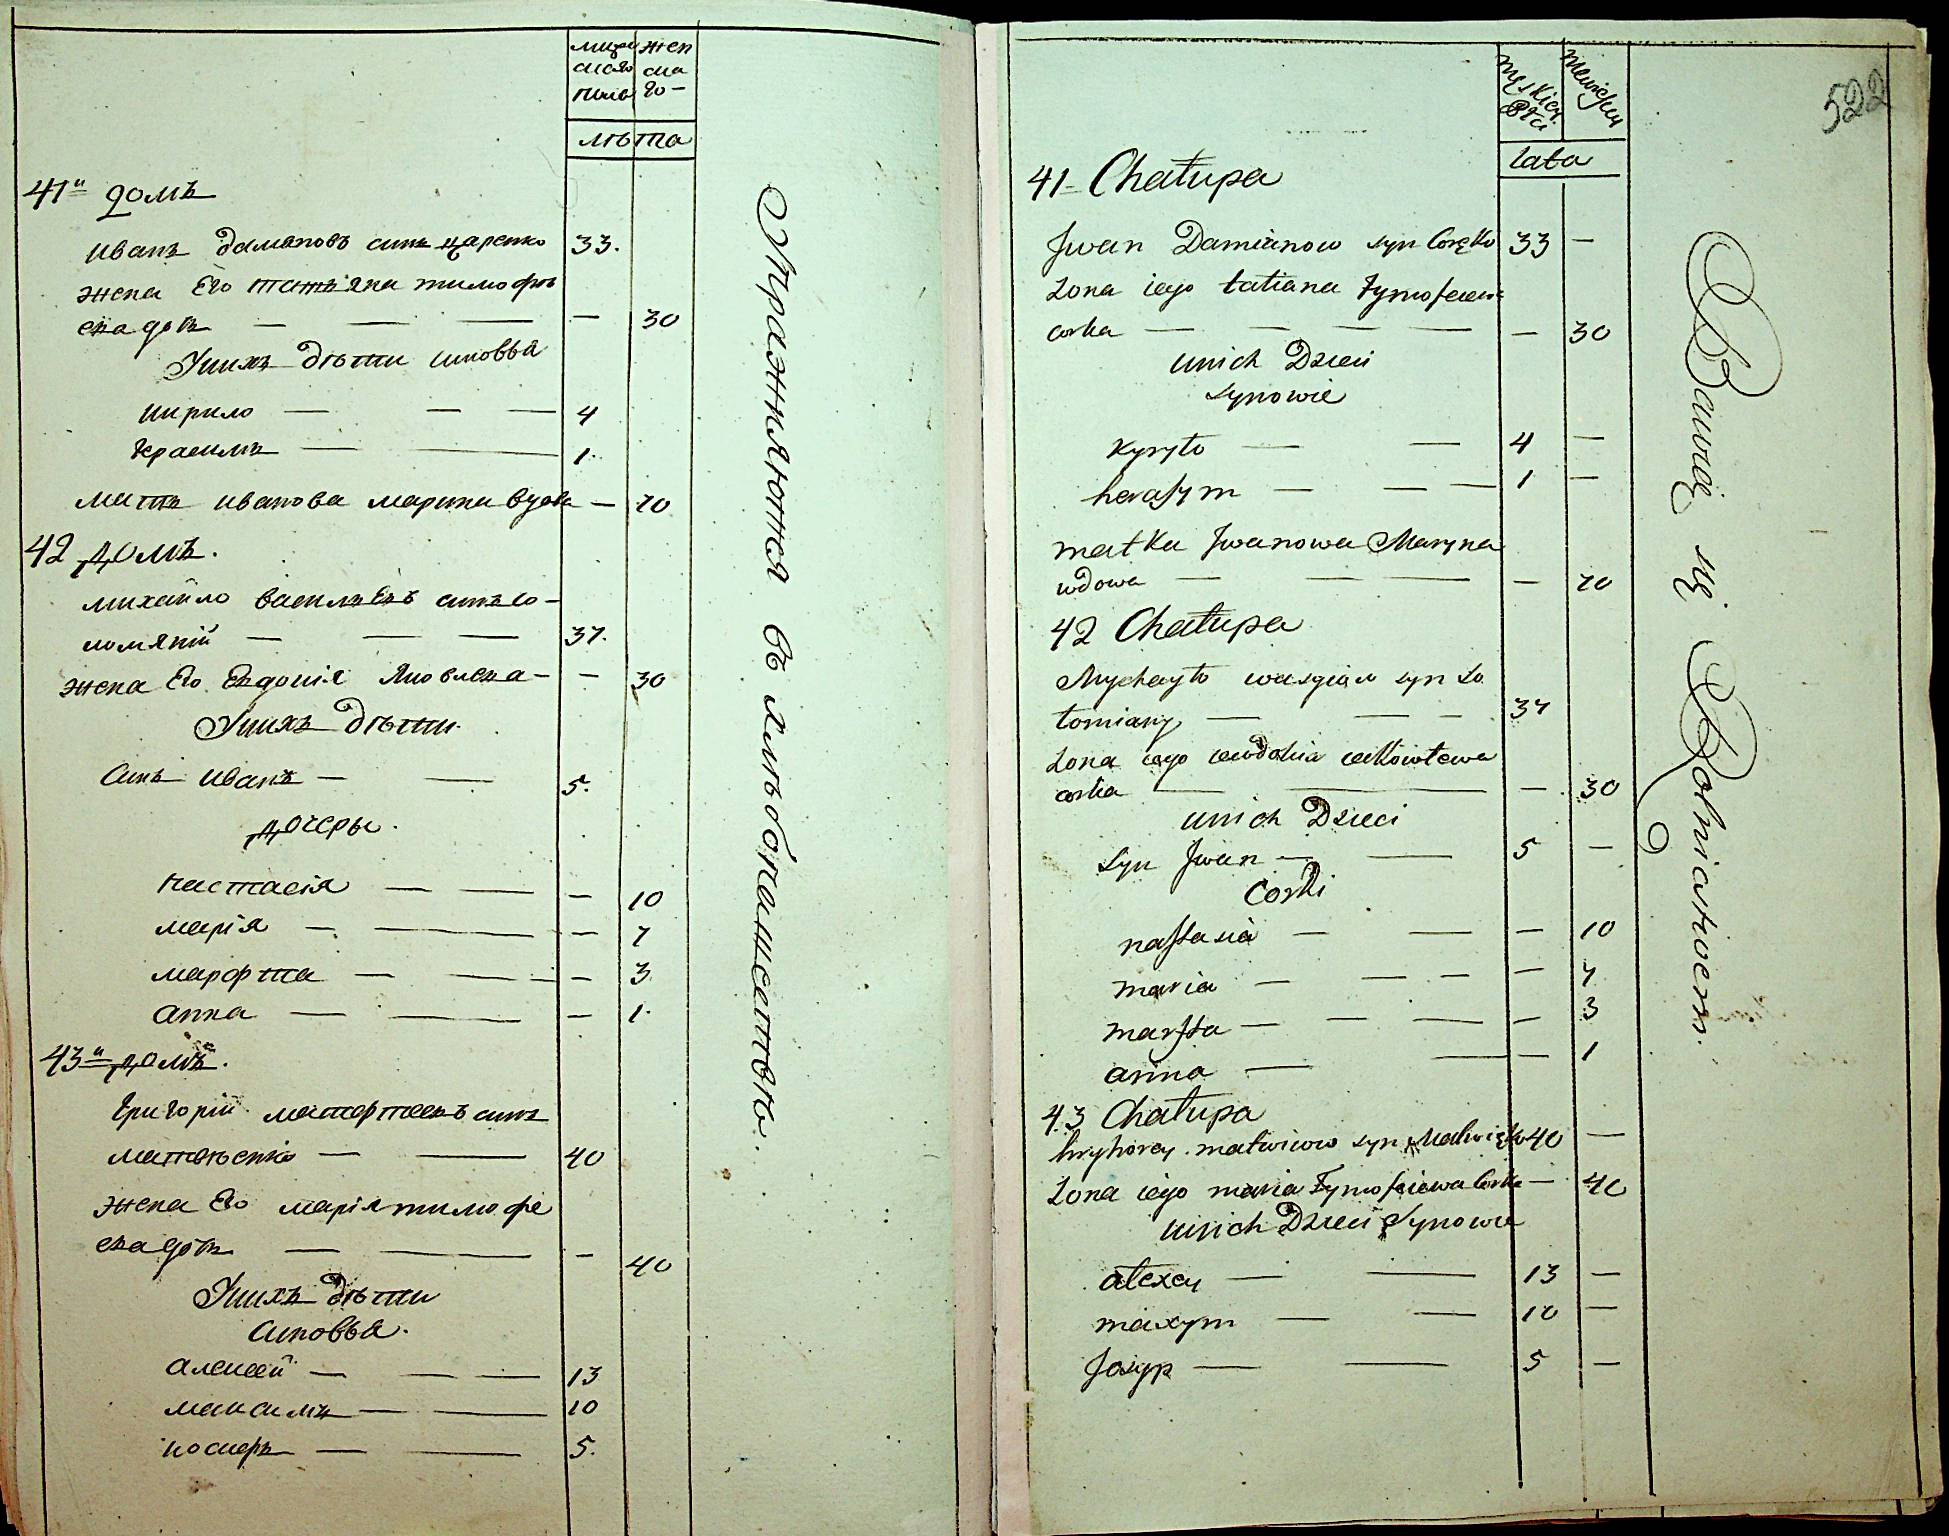 мужескаго пола
женскаго
лѣта
41й домъ
иванъ дамяновъ синъ царенко 33.
жена Его татъяна тимофѣ
ева доч — — — — 30
У нихъ дѣти синовья
кирило — — — 4
Герасимъ — — 1.
мать иванова марина вдова — 70
42 домъ.
михайло васильевъ синъ со-
ломяний — — — 37.
жена Его Евдокия Яковлева - — 30
У нихъ дѣти.
синъ иванъ — — 5.
дочеры.
настасія — — — 10
марія — — — 7
марфта — — — 3
анна — — — 1.
43й домъ.
Григорій матфтеевъ синъ
матвѣенко — — 40
жена Его марія тимофе
ева доч — — — 40
У нихъ дѣти
синовья.
алексей — — — 13
максимъ — — 10
иосиеръ — — 5.
Упражняются въ хлѣбопашествѣ.
522
Męskiey Płci
żeńskiey
lata
41- Chałupa
Jwan Damianow syn Caręko 33 —
żona iego tatiana Tymofeiewa
corka — — — — — 30
u nich Dzieci
synowie
Kyryło — — 4 —
herasym — — — 1 —
matka Jwanowa Maryna
wdowa — — — — 70
42 Chałupa
Mychayło wasyliow syn So
łomiany — — — 37
żona iego iewdokia iakowłewa
corka — — — 30
u nich Dzieci
syn Jwan — — 5 —
Corki
nastasia — — — 10
maria — — — — 7
marfta — — — — 3
anna — — — 1
43 Chałupa
hryhorey matwiiow syn Matwięko 40 —
żona iego maria Tymofeiewa Corka — 40
u nich Dzieci Synowie
alexey — — 13 —
maxym — — 10 —
Josyp — — 5 —
Bawią się Rolnictwem.